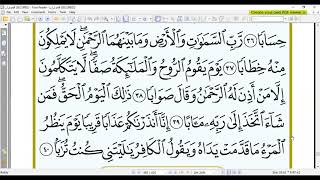 حِسَابًا ﴿٣٦﴾ رَّبِّ السَّمَـٰوَٰتِ وَالْأَرْضِ وَمَا بَيْنَهُمَا الرَّحْمَـٰنِ ۖ لَا يَمْلِكُونَ
مِنْهُ خِطَابًا ﴿٣٧﴾ يَوْمَ يَقُومُ الرُّوحُ وَالْمَلَـٰٓئِكَةُ صَفًّا ۖ لَّا يَتَكَلَّمُونَ
إِلَّا مَنْ أَذِنَ لَهُ الرَّحْمَـٰنُ وَقَالَ صَوَابًا ﴿٣٨﴾ ذَٰلِكَ الْيَوْمُ الْحَقُّ ۖ فَمَن
شَآءَ اتَّخَذَ إِلَىٰ رَبِّهِۦ مَـَٔابًا ﴿٣٩﴾ إِنَّآ أَنذَرْنَـٰكُمْ عَذَابًا قَرِيبًا يَوْمَ يَنظُرُ
الْمَرْءُ مَا قَدَّمَتْ يَدَاهُ وَيَقُولُ الْكَافِرُ يَـٰلَيْتَنِى كُنتُ تُرَٰبًۢا ﴿٤٠﴾